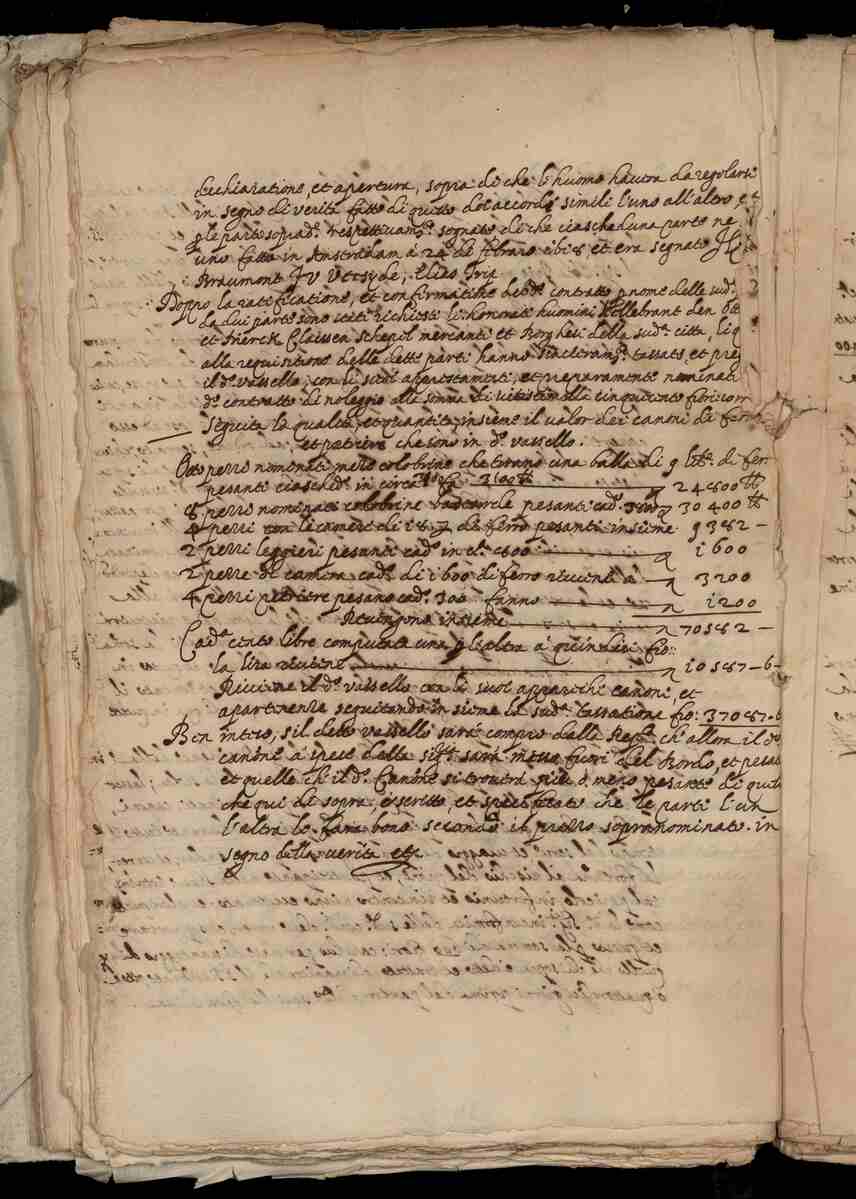 dechiaratione, et apertura, sopra di che l'huomo havera da regolarsi
in segno di verita fatto di questo doi accordi simili l'uno all'altro
le parte soprad.e respettivam.te segnato di che ciascheduna parte ne
uno fatto in Amstredam à 24 di febraro 1618 et era segnato
Braumont JV Versyde, Elias Trip
Doppo la ratificatione, et confirmatione del d.o contratto p nome delle sud.e
da dui parte sono stati richiesti li honorati huomini Hellebrant den
et Meerck Claissen Schepil mercanti et Borghesi della sud.a citta, li
alla requisitione delle dette parti hanno sinceram.te tassato, et
il d.o vassello, con li suoi appostamenti, et preparamenti nominati
d.o contratto di noleggio alla somma di vintisei milla cinquicento fiori
Seguita la qualta, et quantita insieme il valor dei canoni di ferro
et petriere che sono in d.o vassello.
Otto pezzi nominati mezo colobrine che tirano una balla di 9 lib.e di fer
pesanti ciasched.o in circa 3100 lb 24800 lb
8 pezzi nominati colobrine bastarde pesanti cad.o 3800 30400 lb
4 pezzi con le camere di 18 di ferro pesanti insieme 9382 –
2 pezzi leggieri pesanti cad.o in c.a 800 1600
2 pezze di camera cad.o di 1600 di ferro 3200
4 pezzi petriere pesano cad.o 300 fanno 1200
Revengono insieme 70582 –
Cad.o cento libre computate una p l'altra à quindici fio:
la lira 10587–6–
Riccione il d.o vassello con li suoi apparichi canoni, et
apartinenza seguitando insieme la sud.a tassatione fio: 37087–6
Ben inteso, si il detto vassello sara compro dalla Rep.ca ch'allora il d.o
canone à spese della sig.ria sara messo fuori del bordo, et pesato
et quelle ch'il d.o Canone si trovera più ò meno pesante di quel
che qui di sopra, è scritto, et specificato che le parti l'un
l'altra lo fara bono secondo il prezzo sopranominato. in
segno della verita etc.